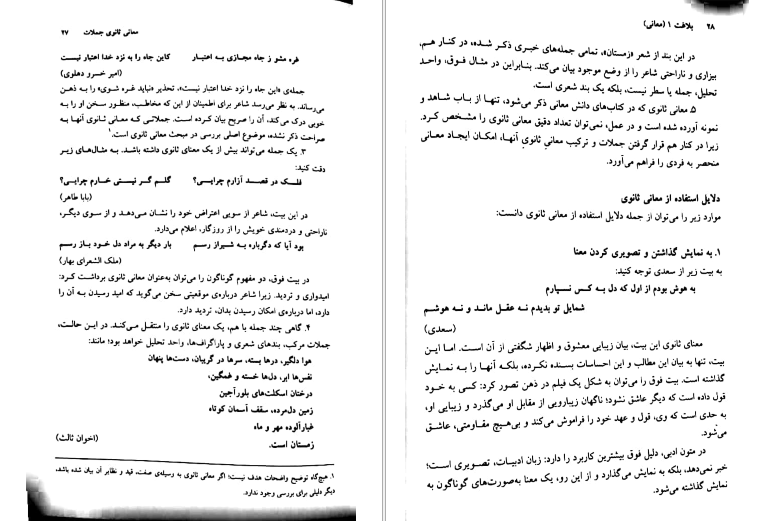 معانی ثانوی جملات ۲۷
غره مشو ز جاه مجازی به اعتبار کاین جاه را به نزد خدا اعتبار نیست
(امیر خسرو دهلوی)
جمله‌ی «این جاه را نزد خدا اعتبار نیست»، تحذیر «نباید غره شوی» را به ذهن
می‌رساند. به نظر می‌رسد شاعر برای اطمینان از این که مخاطب، منظور سخن او را به
خوبی درک می‌کند، آن را صریح بیان کرده است. جملاتی که معانی ثانوی آنها به
صراحت ذکر نشده، موضوع اصلی بررسی در مبحث معانی ثانوی است.۱
۳. یک جمله می‌تواند بیش از یک معنای ثانوی داشته باشد. به مثال‌های زیر
دقت کنید:
فلک در قصد آزارم چرایی؟ گلم گر نیستی خارم چرایی؟
(بابا طاهر)
در این بیت، شاعر از سویی اعتراض خود را نشان می‌دهد و از سوی دیگر،
ناراحتی و دردمندی خویش را از روزگار، اعلام می‌دارد.
بود آیا که دگرباره به شیراز رسم بار دیگر به مراد دل خود باز رسم
(ملک الشعرای بهار)
در بیت فوق، دو مفهوم گوناگون را می‌توان به‌عنوان معانی ثانوی برداشت کرد:
امیدواری و تردید. زیرا شاعر درباره‌ی موقعیتی سخن می‌گوید که امید رسیدن به آن را
دارد، اما درباره‌ی امکان رسیدن بدان، تردید دارد.
۴. گاهی چند جمله با هم، یک معنای ثانوی را منتقل می‌کنند. در این حالت،
جملات مرکب، بندهای شعری و پاراگراف‌ها، واحد تحلیل خواهد بود؛ مانند:
هوا دلگیر، درها بسته، سرها در گریبان، دست‌ها پنهان
نفس‌ها ابر، دل‌ها خسته و غمگین،
درختان اسکلت‌های بلورآجین
زمین دل‌مرده، سقف آسمان کوتاه
غبارآلوده مهر و ماه
زمستان است.
(اخوان ثالث)
۱. هیچ‌گاه توضیح واضحات هدف نیست؛ اگر معانی ثانوی به وسیله‌ی صفت، قید و نظایر آن بیان شده باشد،
دیگر دلیلی برای بررسی وجود ندارد.
۲۸ بلاغت ۱ (معانی)
در این بند از شعر «زمستان»، تمامی جمله‌های خبری ذکر شده، در کنار هم،
بیزاری و ناراحتی شاعر را از وضع موجود بیان می‌کند. بنابراین در مثال فوق، واحد
تحلیل، جمله یا سطر نیست، بلکه یک بند شعری است.
۵. معانی ثانوی که در کتاب‌های دانش معانی ذکر می‌شود، تنها از باب شاهد و
نمونه آورده شده است و در عمل، نمی‌توان تعداد دقیق معانی ثانوی را مشخص کرد.
زیرا در کنار هم قرار گرفتن جملات و ترکیب معانی ثانوی آنها، امکان ایجاد معانی
منحصر به فردی را فراهم می‌آورد.
دلایل استفاده از معانی ثانوی
موارد زیر را می‌توان از جمله دلایل استفاده از معانی ثانوی دانست:
۱. به نمایش گذاشتن و تصویری کردن معنا
به بیت زیر از سعدی توجه کنید:
به هوش بودم از اول که دل به کس نسپارم
شمایل تو بدیدم نه عقل ماند و نه هوشم
(سعدی)
معنای ثانوی این بیت، بیان زیبایی معشوق و اظهار شگفتی از آن است. اما این
بیت، تنها به بیان این مطالب و این احساسات بسنده نکرده، بلکه آنها را به نمایش
گذاشته است. بیت فوق را می‌توان به شکل یک فیلم در ذهن تصور کرد: کسی به خود
قول داده است که دیگر عاشق نشود؛ ناگهان زیبارویی از مقابل او می‌گذرد و زیبایی او،
به حدی است که وی، قول و عهد خود را فراموش می‌کند و بی‌هیچ مقاومتی، عاشق
می‌شود.
در متون ادبی، دلیل فوق بیشترین کاربرد را دارد: زبان ادبیات، تصویری است؛
خبر نمی‌دهد، بلکه به نمایش می‌گذارد و از این رو، یک معنا به‌صورت‌های گوناگون به
نمایش گذاشته می‌شود.